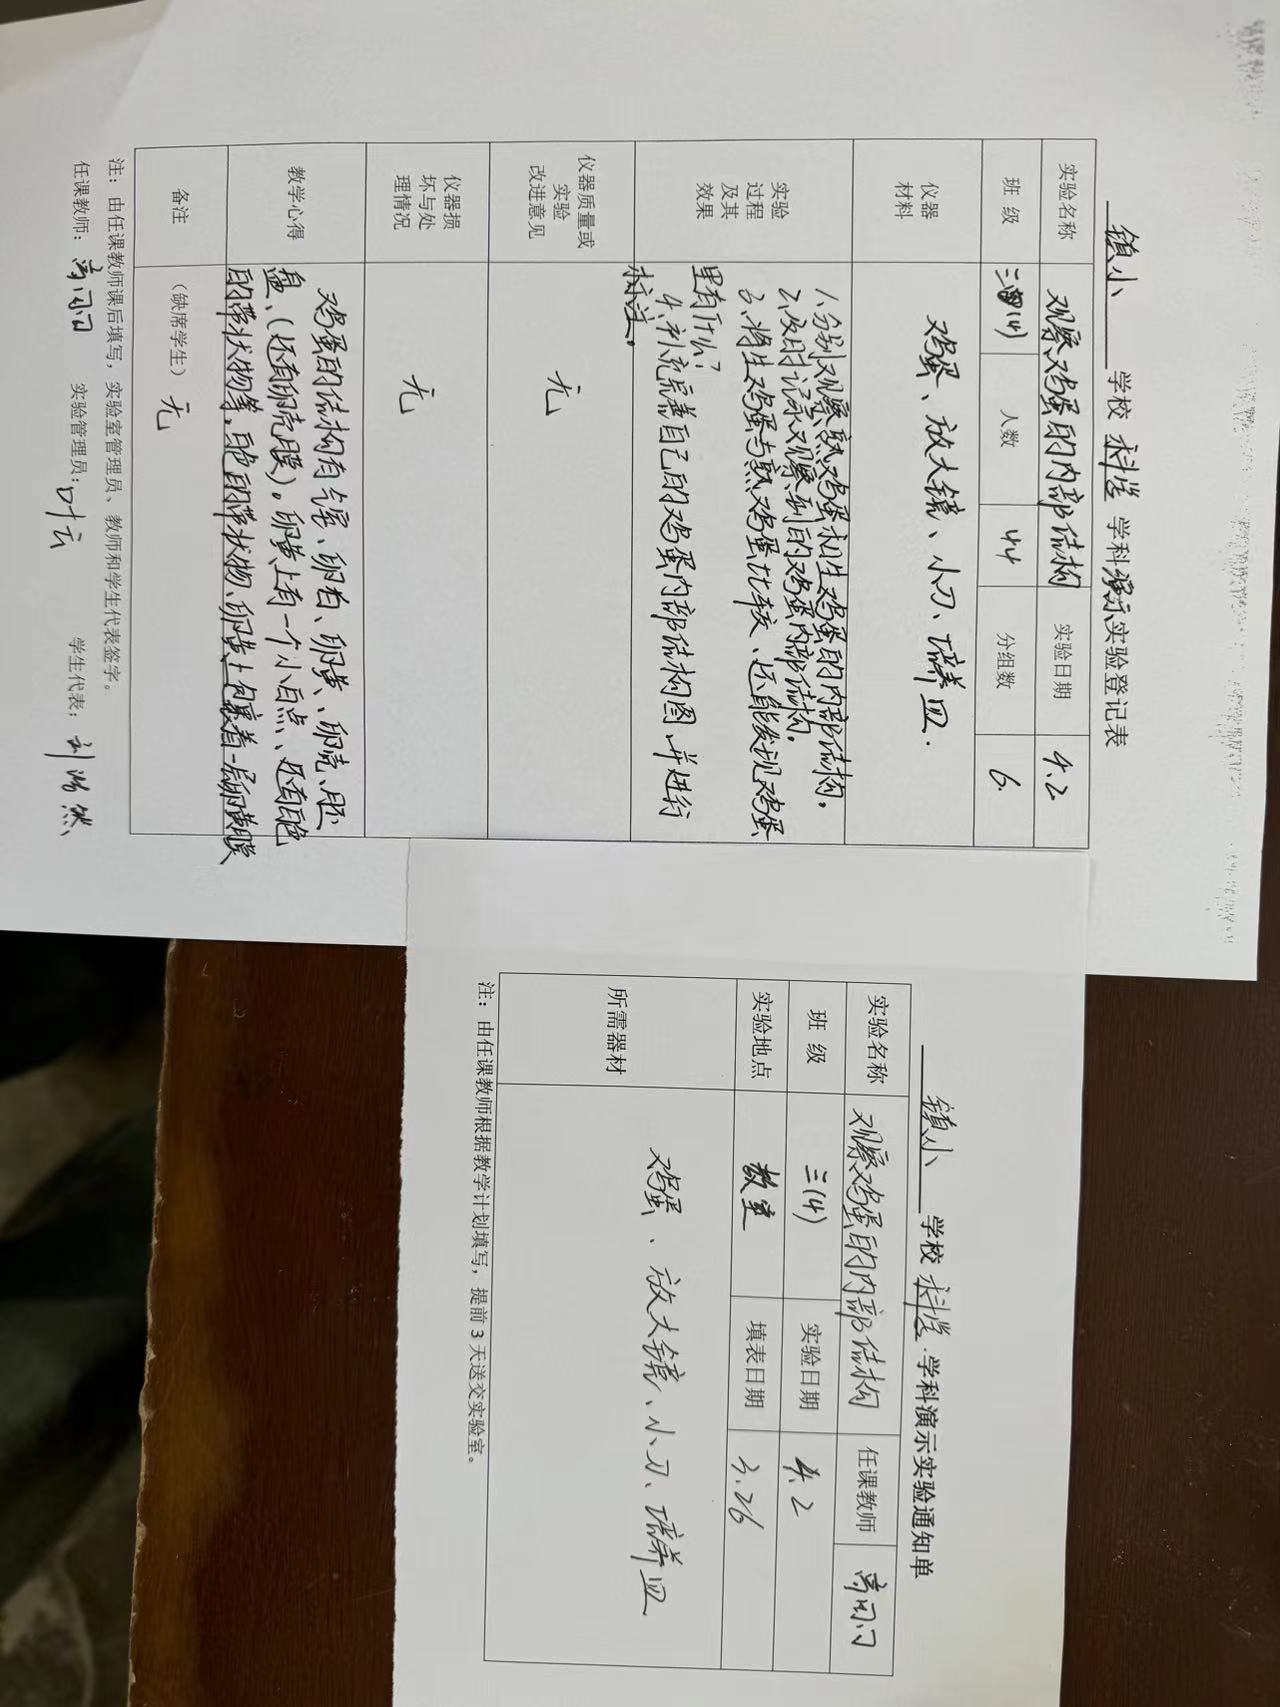 镇小 学校 科学 学科演示实验登记表
实验名称 观察鸡蛋的内部结构 实验日期 4.2
班 级 三(4) 人数 44 分组数 6.
仪器
材料
鸡蛋、放大镜、小刀、培养皿.
实验
过程
及其
效果
1.分别观察熟鸡蛋和生鸡蛋的内部结构。
2.及时记录观察到的鸡蛋内部结构。
3.将生鸡蛋与熟鸡蛋比较、还能发现鸡蛋
里有什么?
4.补充完善自己的鸡蛋内部结构图、并进行
标注。
仪器质量或
实验
改进意见
无
仪器损
坏与处
理情况
无
教学心得
鸡蛋的结构有气室、卵白、卵黄、卵壳、胚
盘、(还有卵壳膜)。卵黄上有一个小白点、还有白色
的带状物等,白色的带状物、卵黄上包裹着一层卵黄膜
备注
(缺席学生) 无
注:由任课教师课后填写,实验室管理员、教师和学生代表签字。
任课教师: 实验管理员:叶云 学生代表:刘浩然
镇小 学校 科学 学科演示实验通知单
实验名称 观察鸡蛋的内部结构 任课教师
班 级 三(4) 实验日期 4.2
实验地点 教室 填表日期 3.26
所需器材
鸡蛋、放大镜、小刀、培养皿
注:由任课教师根据教学计划填写,提前 3 天送交实验室。